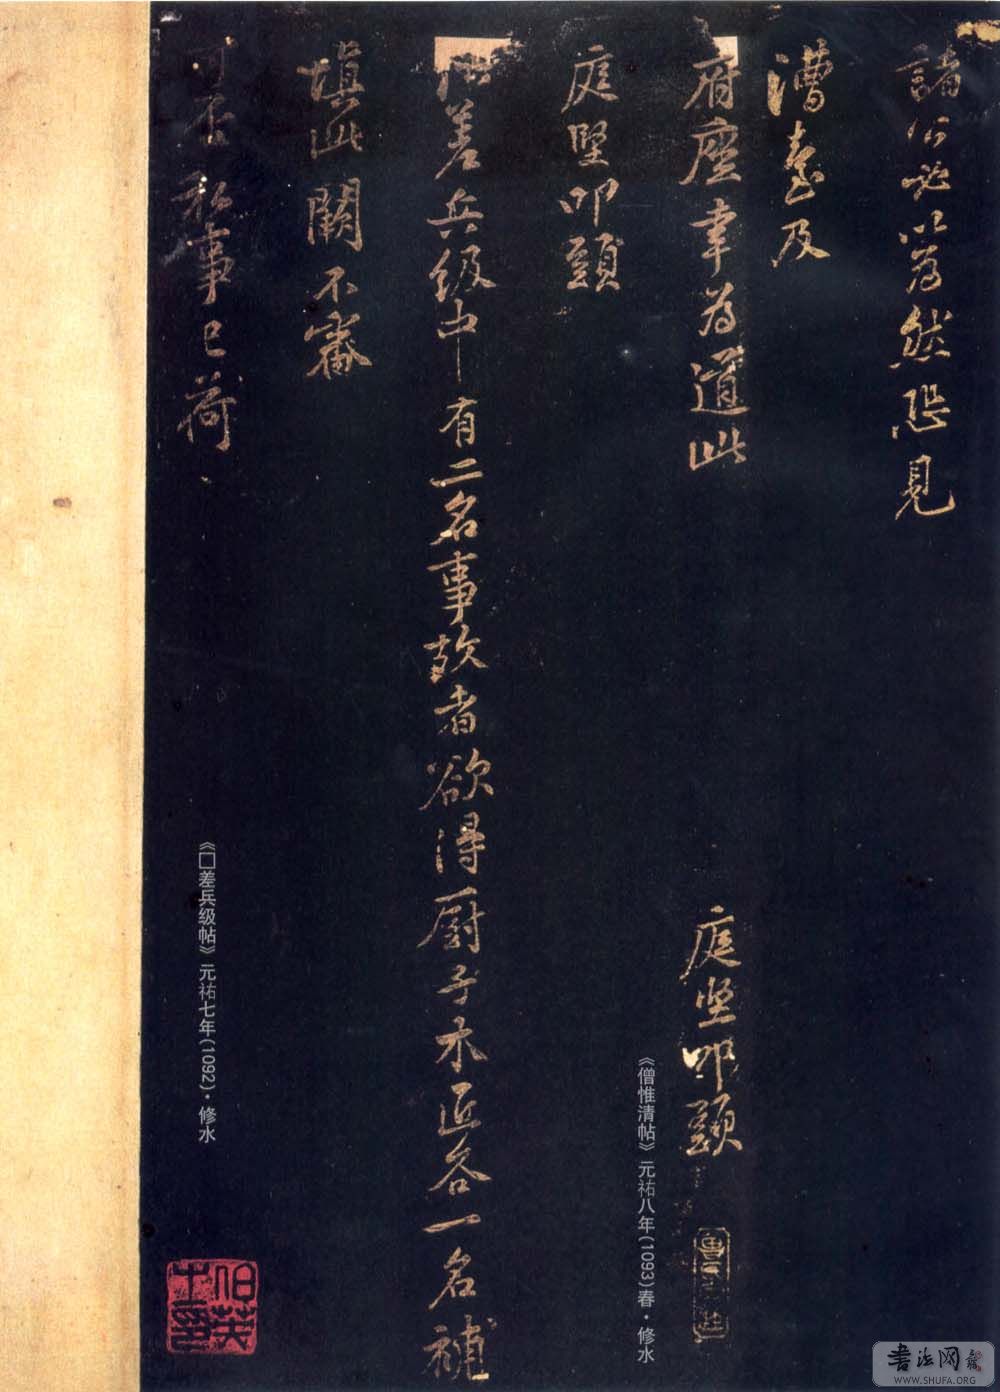 諸公必以为然恐見
漕臺及
府座幸为道此
庭坚叩頭
庭堅叩頭
差兵级中有二名事故者欲得厨子木匠各一名補
填此闕不審
可否私事已荷
《僧惟清帖》元祐八年(1093)春·修水
《□差兵级帖》元祐七年(1092)·修水
书法网
WWW.SHUFA.ORG